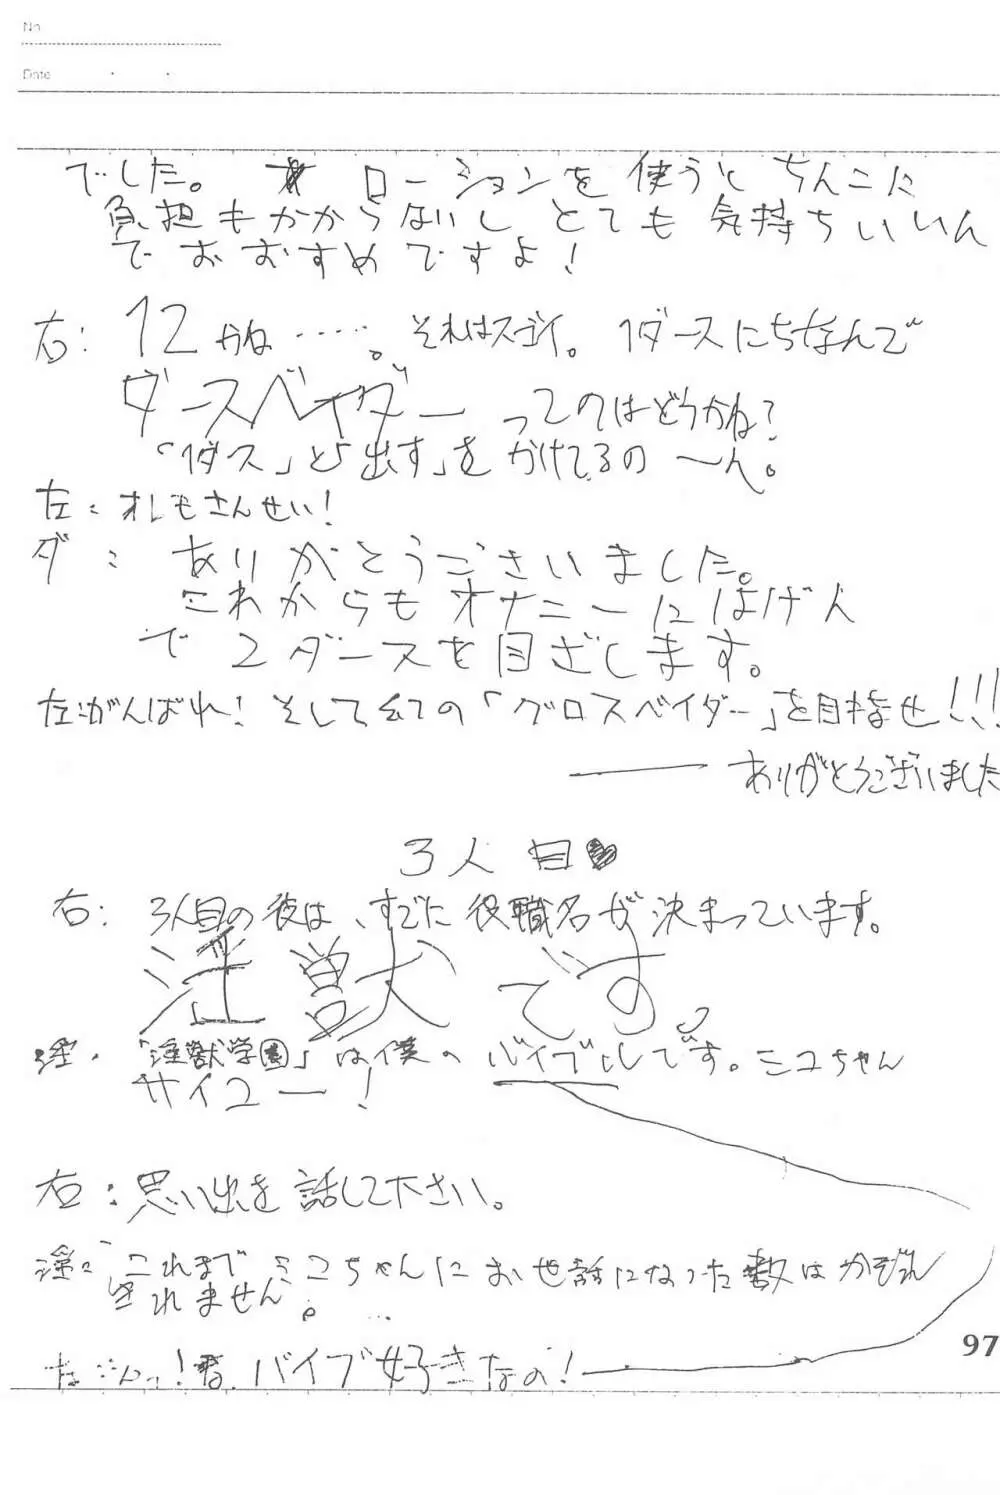 No.
Date
でした。 ローションを使うとちんこに
負担もかからないし とても気持ちいいん
でおおすめですよ!
右: 12かね……。それはスゴイ。1ダースにちなんで
ダースベイダー ってのはどうかね?
「1ダス」と「出す」をかけてるの〜ん。
左: オレもさんせい!
ダ: ありがとうございました。
これからもオナニーにはげん
で2ダースを目ざします。
左:がんばれ!そして全ての「グロスベイダー」を目指せ!!!
ありがとうございました
3人目
右: 3人目の彼は、すでに役職名が決まっています。
淫獣です。
淫・「淫獣学園」は僕の バイブルです。ミユちゃん
サイコー!
右:思い出を話して下さい。
淫: これまでミユちゃんにお世話になった数はかぞえ
きれません。…
んっ!君、バイブ好きなの!
97